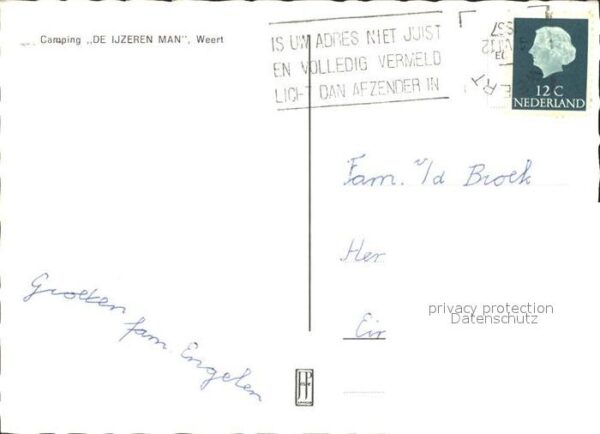 Camping „DE IJZEREN MAN", Weert
IS UW ADRES NIET JUIST
EN VOLLEDIG VERMELD
LICHT DAN AFZENDER IN
12 C
NEDERLAND
Fam. v/d Broek
Her
Eir
privacy protection
Datenschutz
Groeten
fam Engelen